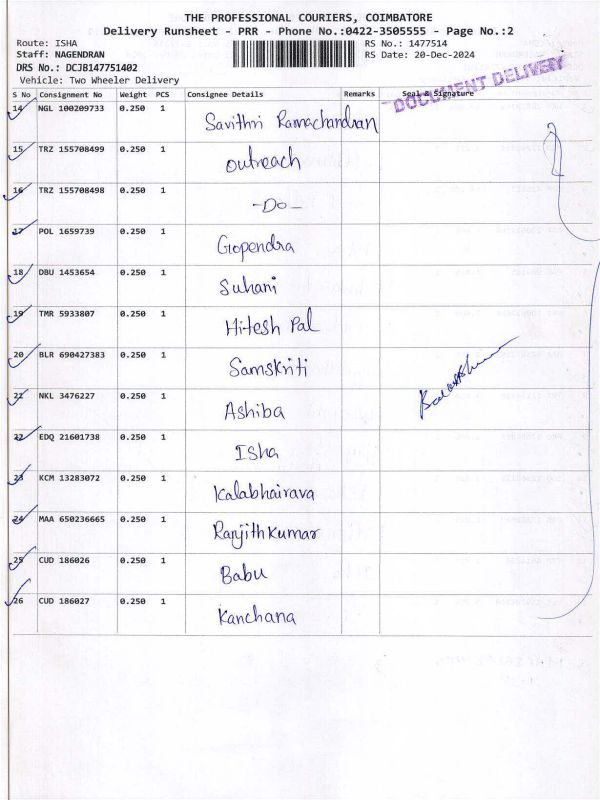 THE PROFESSIONAL COURIERS, COIMBATORE
Delivery Runsheet - PRR - Phone No.:0422-3505555 - Page No.:2
Route: ISHA
RS No.: 1477514
Staff: NAGENDRAN
RS Date: 20-Dec-2024
DRS No.: DCJB147751402
Vehicle: Two Wheeler Delivery
S No Consignment No Weight PCS Consignee Details Remarks Seal & Signature
DOCUMENT DELIVERY
14 NGL 100209733 0.250 1 Savithri Ramachandran
15 TRZ 155708499 0.250 1 Outreach
16 TRZ 155708498 0.250 1 -Do-
17 POL 1659739 0.250 1 Gopendra
18 DBU 1453654 0.250 1 Suhani
19 TMR 5933807 0.250 1 Hitesh Pal
20 BLR 690427383 0.250 1 Samskriti
21 NKL 3476227 0.250 1 Ashiba
22 EDQ 21601738 0.250 1 Isha
23 KCM 13283072 0.250 1 Kalabhairava
24 MAA 650236665 0.250 1 Ranjith Kumar
25 CUD 186026 0.250 1 Babu
26 CUD 186027 0.250 1 Kanchana